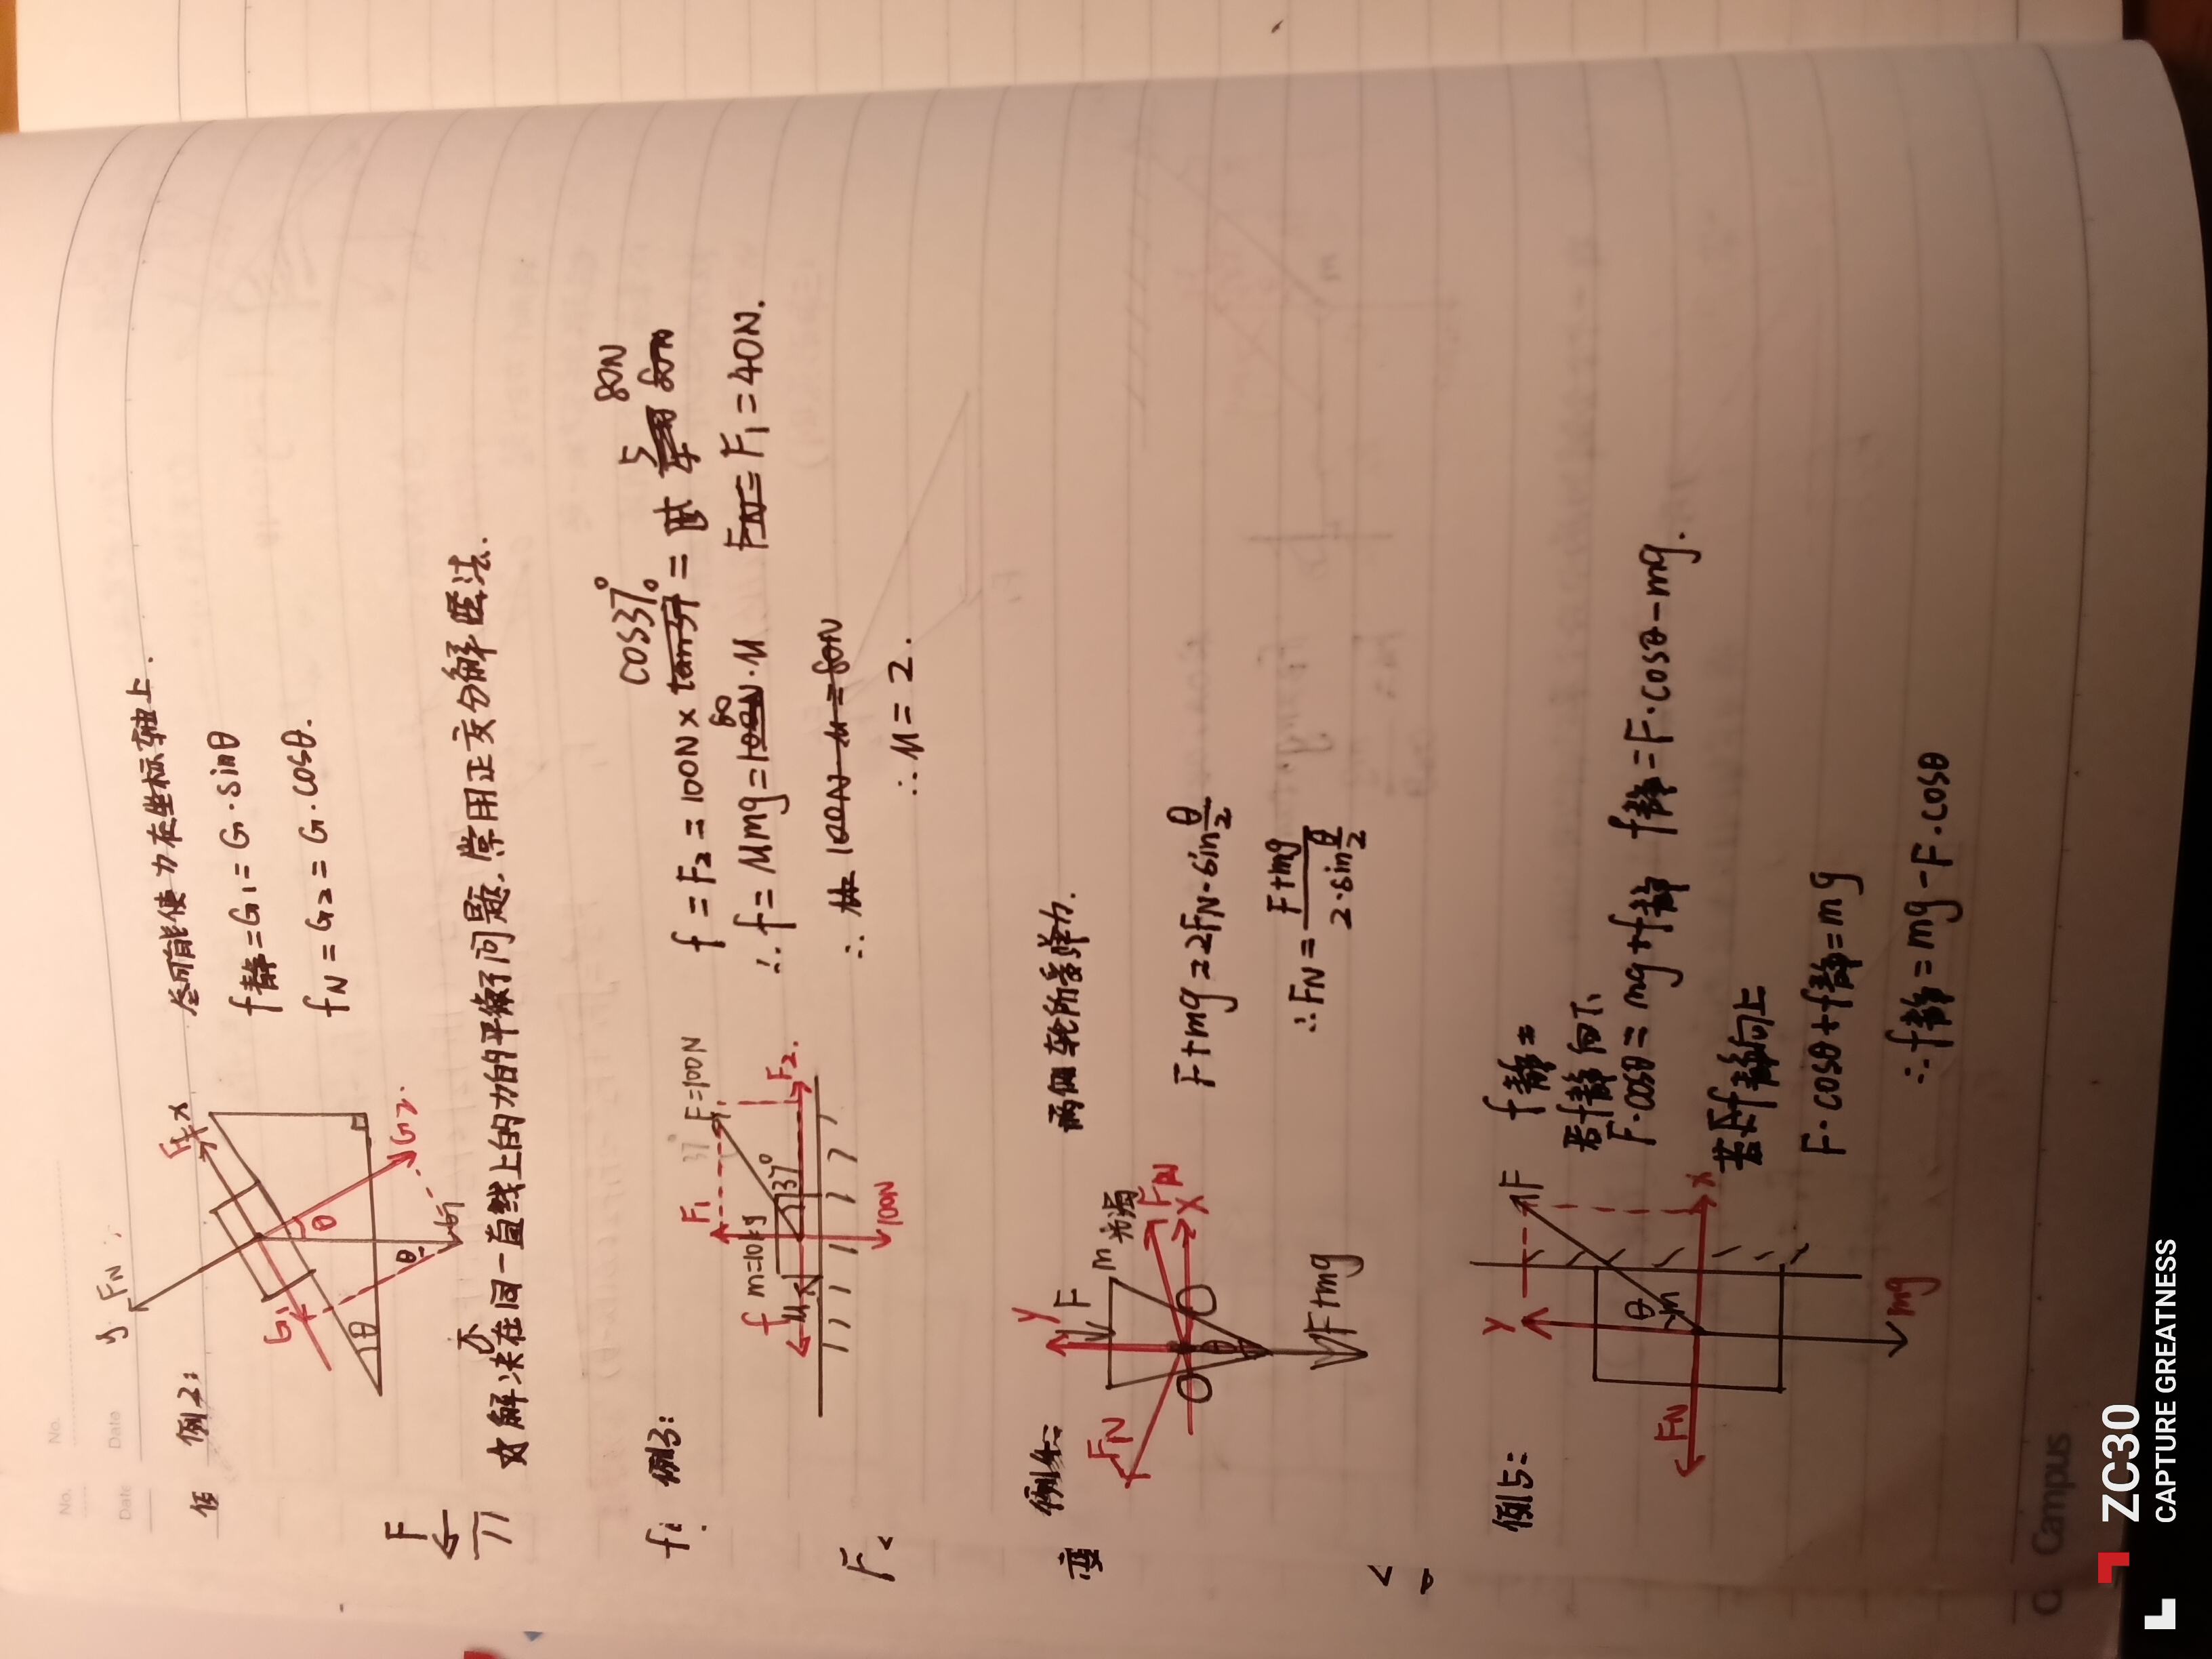 No.
Date
No.
Date
例2:
y
FN
F
x
G1
θ
θ
θ
G
G2
尽可能使力在坐标轴上.
f静=G1=G·sinθ
fN=G2=G·cosθ.
解决不在同一直线上的力的平衡问题,常用正交分解法.
F
例3:
F1
37°
F=100N
m=10kg
f
μ
37°
F2.
100N
f=F2=100N×cos37°=
80N
∴f=μmg=
80
·μ
F1=40N.
∴
∴μ=2.
例4:
Y
F
m
光滑
FN
FN
X
θ
F+mg
两侧轮所受弹力.
F+mg=2FN·sin θ/2
∴FN= F+mg / 2·sin θ/2
例5:
Y
F
θ
m
FN
x
mg
f静=
若f静向下
F·cosθ=mg+f静 f静=F·cosθ-mg.
若f静向上
F·cosθ+f静=mg
∴f静=mg-F·cosθ
Campus
ZC30
CAPTURE GREATNESS